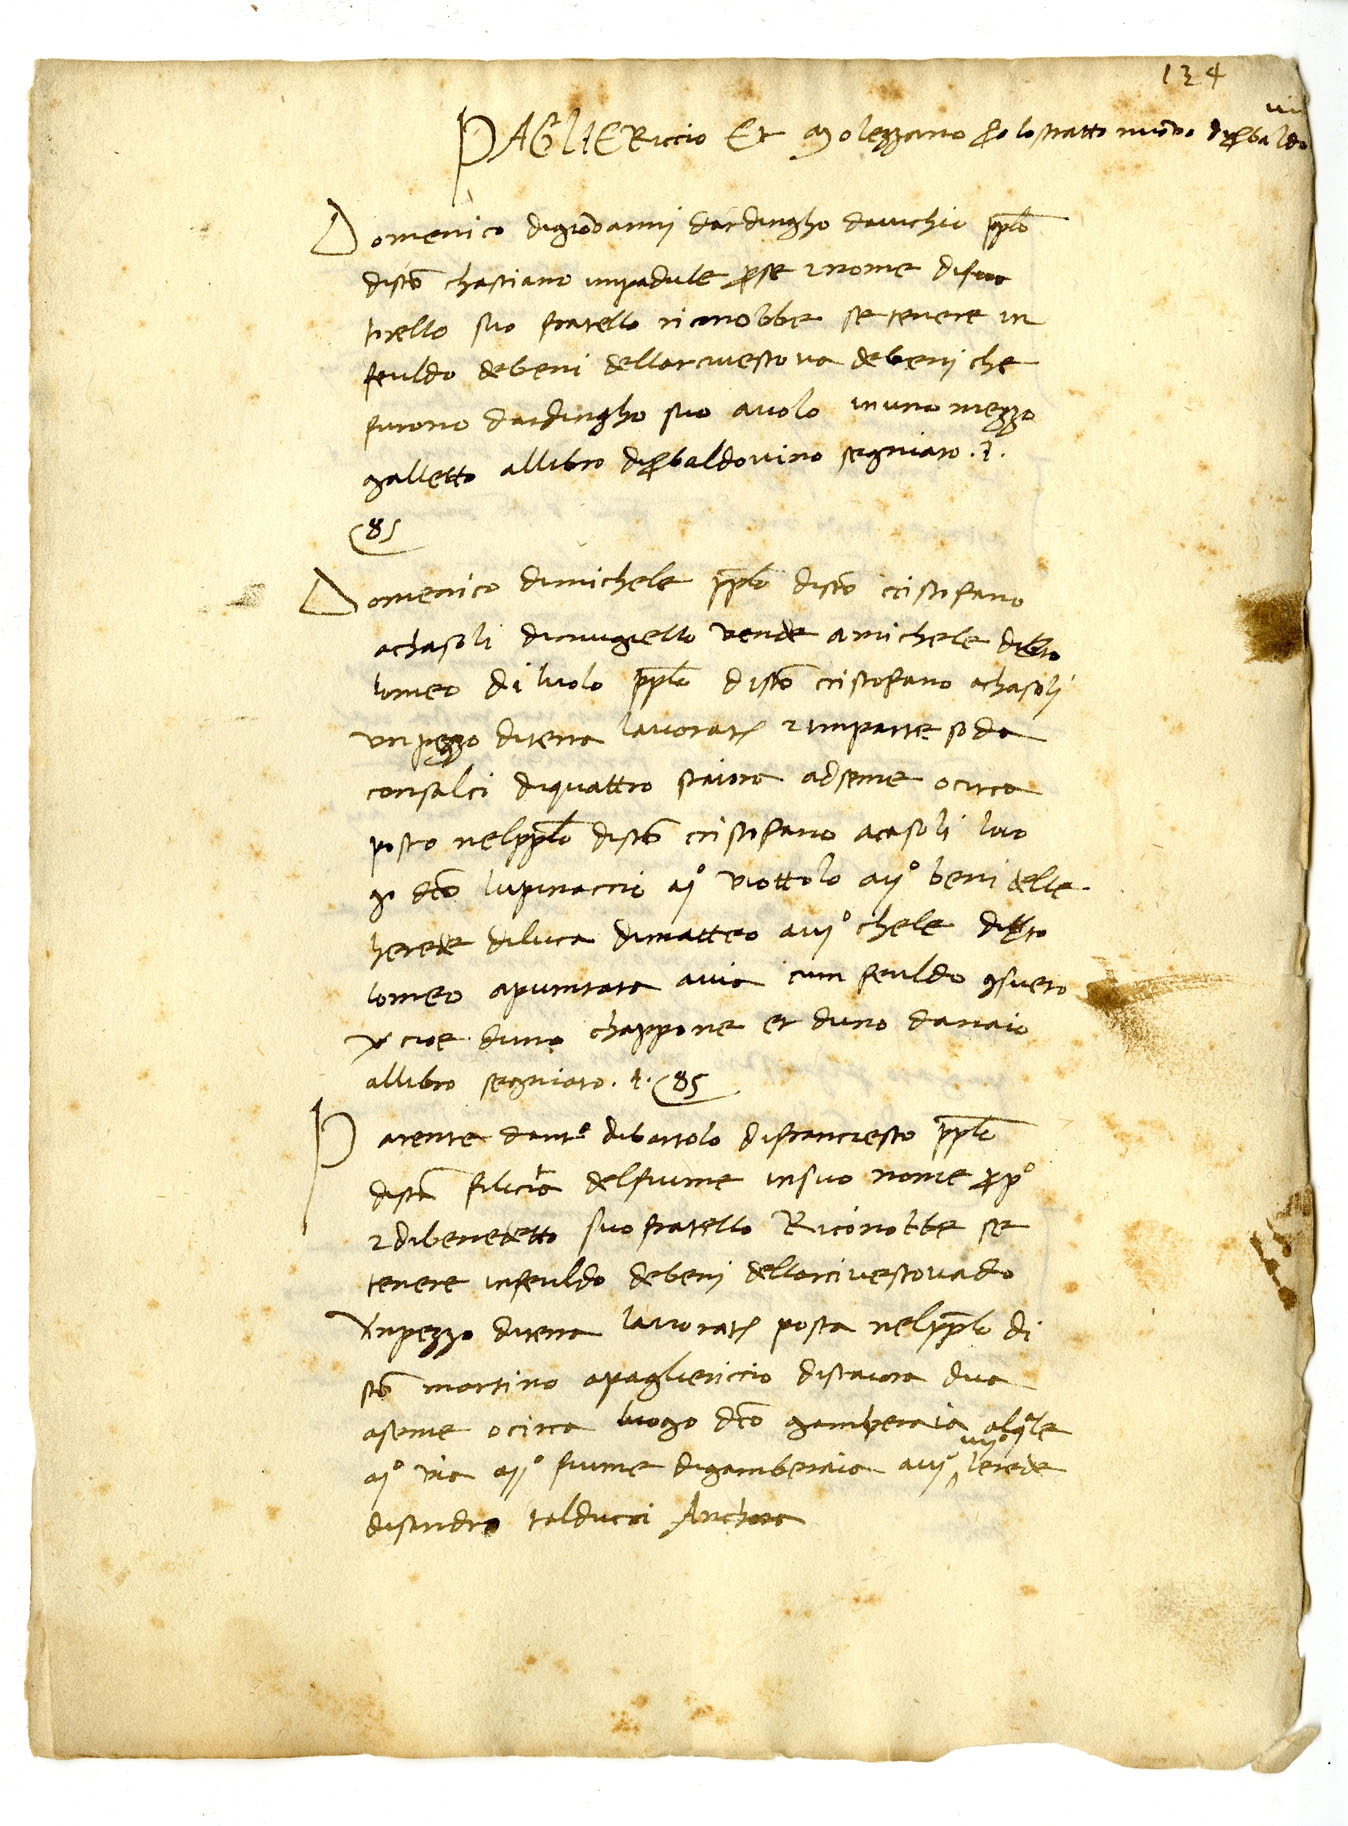 134
PAGLIERiccio Et Molezzano p lo stratto nuovo di s baldo
vin
Domenico digiovannj dardingho davichio pplo
disto chastiano inpadule p se 2 nome di san
tirello suo fratello riconobbe se tenere in
feuldo debeni dellarcivescova debenj che
furono dardingho suo avolo in uno mezzo
galletto allibro di s baldovino segniato . 1 .
85
Domenico dimichele pplo disto cristofano
achasoli dimugiello vende amichele di barto
lomeo di luolo pplo disto cristofano achasolj
un pezzo diterra lavorat 2 imparte soda
consalci diquattro staiora adseme ocirca
posto nelpplo disto cristofano acasoli luo
go dto lupinaccio aj° viottolo aij° beni delle
herede diluca dimatteo aiij° chele di barto
lomeo apuntata avia cum feuldo gsueto
cioe duno chappone et duno danaio
allibro segniato . 1 . 85
Parente dant° dibartolo difranciesco pplo
dista filicita delfiume insuo nome pp°
2 dibenedetto suo fratello Riconobbe se
tenere infeuldo debenj dellarcivescovado
Unpezzo diterra lavorat posta nelpplo di
sto martino apaglericcio distaiora dua
aseme ocirca luogo dto gamberaia alqle
aj° via aij° fiume digamberaia aiij° iiij° lerede
disandro talducci Anchora